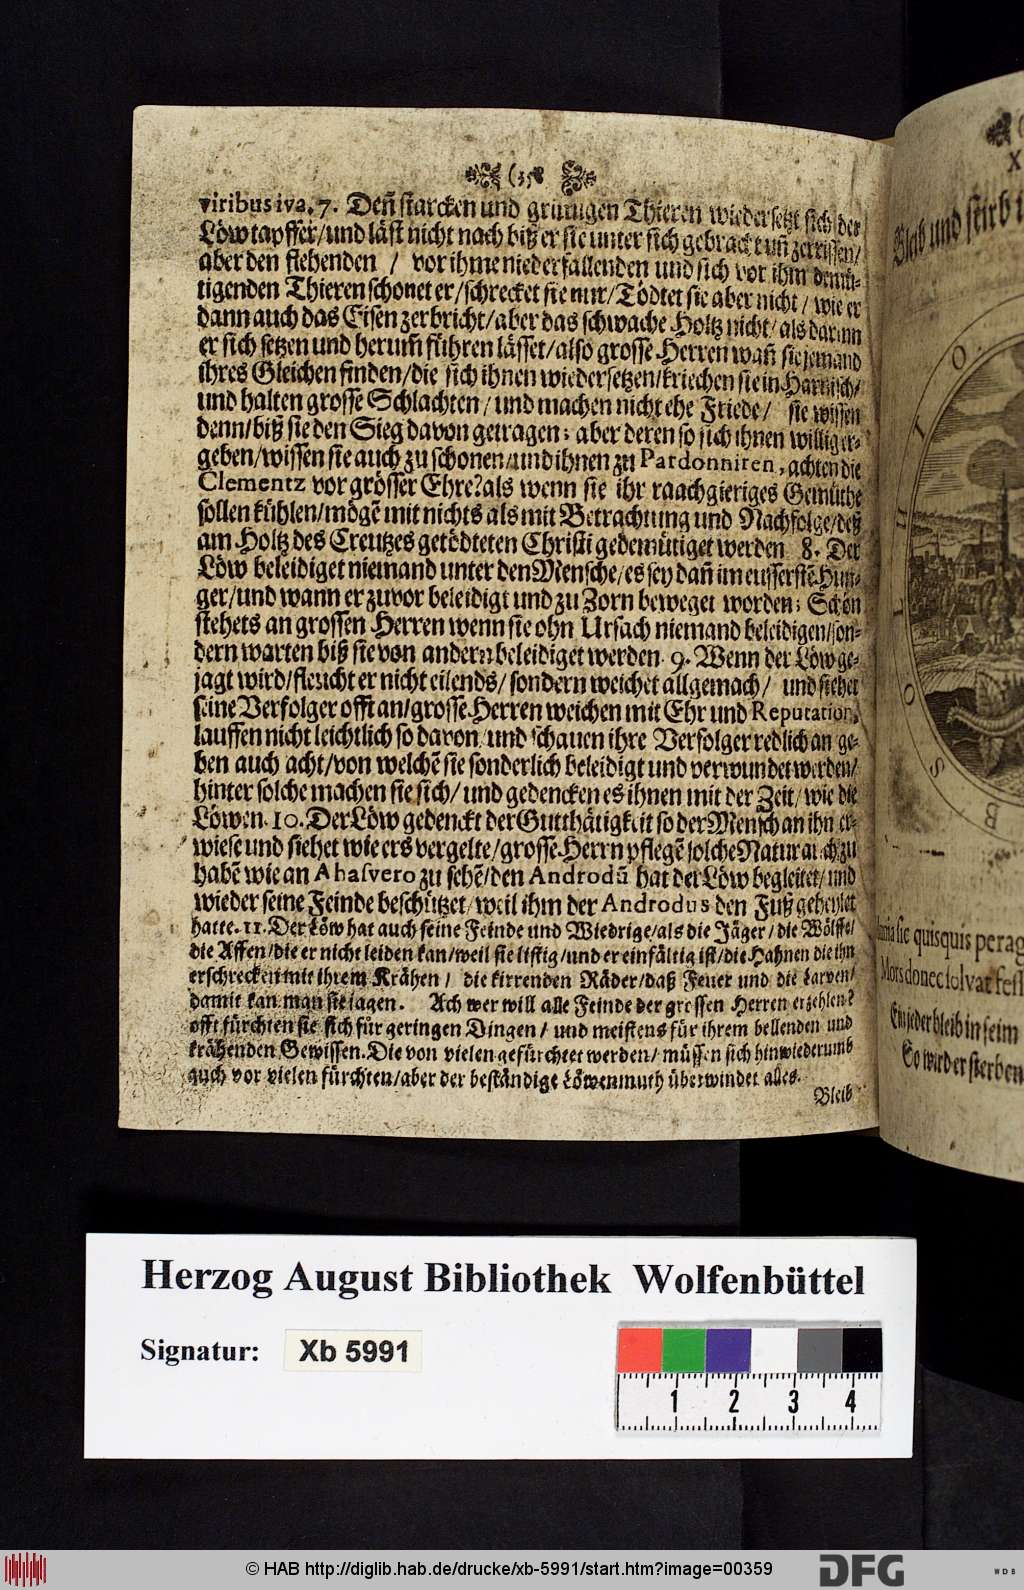 viribus iva. 7. Deñ starcken und grimmigen Thieren wiedersetzt sich der
Löw tapffer/und läst nicht nach biß er sie unter sich gebracht uñ zerrissen/
aber den flehenden / vor ihme niederfallenden und sich vor ihm demü-
tigenden Thieren schonet er/schrecket sie nur/Tödtet sie aber nicht/ wie er
dann auch das Eisen zerbricht/aber das schwache Holtz nicht/als darinn
er sich setzen und herum̃ führen lässet/also grosse Herren wañ sie jemand
ihres Gleichen finden/die sich ihnen wiedersetzen/kriechen sie in Harnisch/
und halten grosse Schlachten/und machen nicht ehe Friede/ sie wissen
denn/biß sie den Sieg davon getragen; aber deren so sich ihnen willig er-
geben/wissen sie auch zu schonen/und ihnen zu Pardonniren, achten die
Clementz vor grösser Ehre?als wenn sie ihr raachgieriges Gemüthe
sollen kühlen/mögẽ mit nichts als mit Betrachtung und Nachfolge/deß
am Holtz des Creutzes getödteten Christi gedemütiget werden 8. Der
Löw beleidiget niemand unter den Mensche/es sey dañ im eusserstẽ Hun-
ger/und wann er zuvor beleidigt und zu Zorn beweget worden; Schön
stehets an grossen Herren wenn sie ohn Ursach niemand beleidigen/son-
dern warten biß sie von andern beleidiget werden. 9. Wenn der Löw ge-
jagt wird/fleucht er nicht eilends/sondern weichet allgemach/ und siehet
seine Verfolger offt an/grosse Herren weichen mit Ehr und Reputation,
lauffen nicht leichtlich so davon/und schauen ihre Verfolger redlich an ge-
ben auch acht/von welchẽ sie sonderlich beleidigt und verwundet werden/
hinter solche machen sie sich/ und gedencken es ihnen mit der Zeit/wie die
Löwen. 10. Der Löw gedenckt der Gutthätigkeit so der Mensch an ihn er-
wiese und siehet wie ers vergelte/grosse Herrn pflegẽ solche Natur auch zu
habẽ wie an Ahasvero zu sehẽ/den Androdũ hat der Löw begleitet/und
wieder seine Feinde beschützet/weil ihm der Androdus den Fuß geheylet
hatte. 11. Der Löw hat auch seine Feinde und Wiedrige/als die Jäger/die Wölffe/
die Affen/die er nicht leiden kan/weil sie listig/und er einfältig ist/die Hahnen die ihn
erschrecken mit ihrem Krähen/ die kirrenden Räder/daß Feuer und die Larven/
damit kan man sie jagen. Ach wer will alle Feinde der grossen Herren erzehlen?
offt fürchten sie sich für geringen Dingen/ und meistens für ihrem bellenden und
krähenden Gewissen. Die von vielen gefürchtet werden/ müssen sich hinwiederumb
auch vor vielen fürchten/aber der beständige Löwenmuth überwindet alles.
Bleib
X
Bleib und stirb
sic quisquis perag
Mors donec solvat
Ein jeder bleib in seim
So wird er sterben
Herzog August Bibliothek Wolfenbüttel
Signatur: Xb 5991
1 2 3 4
© HAB http://diglib.hab.de/drucke/xb-5991/start.htm?image=00359
DFG
WDB